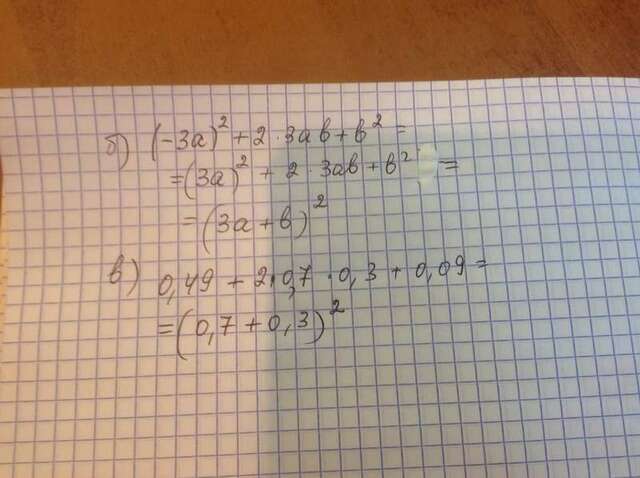 б) (-3a)² + 2·3ab + b² =
= (3a)² + 2·3ab + b² =
= (3a + b)²
в) 0,49 + 2·0,7·0,3 + 0,09 =
= (0,7 + 0,3)²